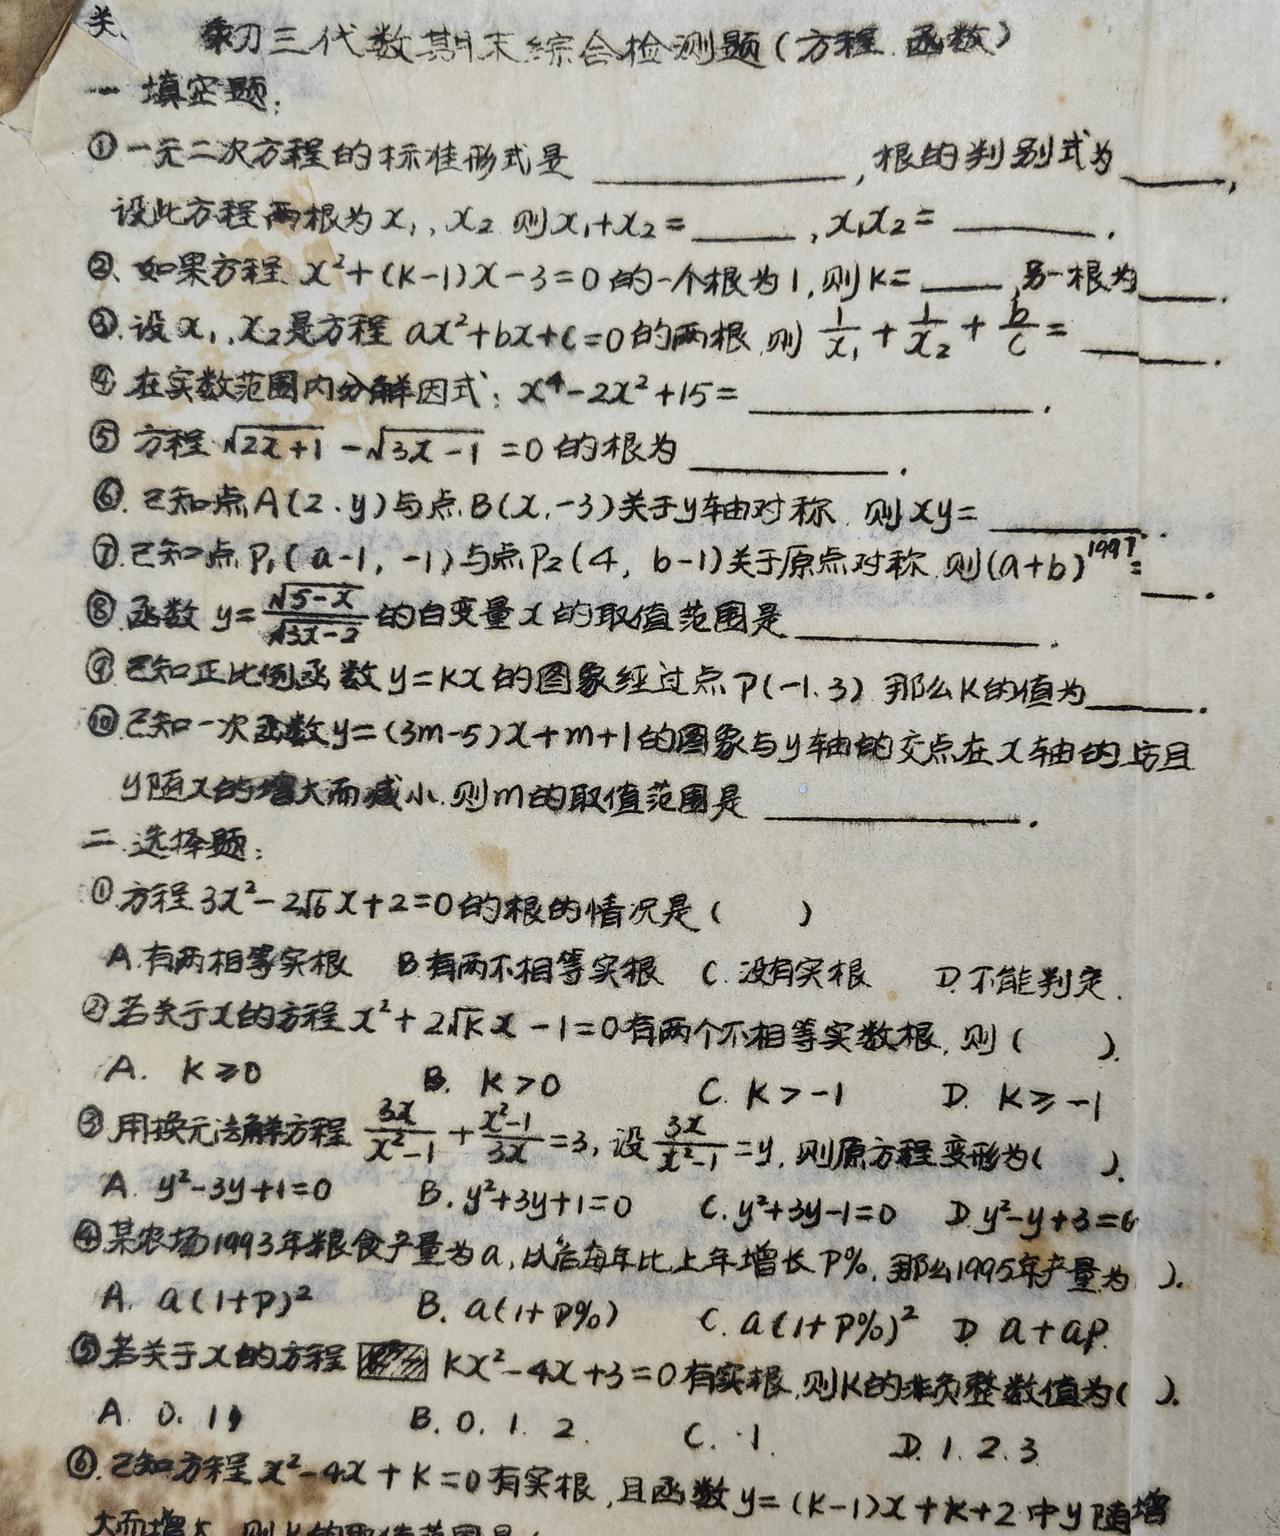 关
初三代数期末综合检测题(方程.函数)
一 填空题:
①一元二次方程的标准形式是________,根的判别式为____,
设此方程两根为x₁,x₂则x₁+x₂=____,x₁x₂=_____.
②.如果方程 x²+(k-1)x-3=0的一个根为1,则k=____另一根为____.
③.设x₁,x₂是方程 ax²+bx+c=0的两根,则 1/x₁+1/x₂+b/c=_____.
④在实数范围内分解因式:x⁴-2x²+15=_________.
⑤ 方程√(2x+1)-√(3x-1)=0的根为_______.
⑥.已知点A(2.y)与点B(x,-3)关于y轴对称.则xy=_____.
⑦.已知点P₁(a-1,-1)与点P₂(4,b-1)关于原点对称.则(a+b)¹⁹⁹⁷=___.
⑧.函数 y=√(5-x)/√(3x-2)的自变量x的取值范围是________.
⑨已知正比例函数y=kx的图象经过点P(-1.3)那么k的值为____.
⑩.已知一次函数y=(3m-5)x+m+1的图象与y轴的交点在x轴的上方且
y随x的增大而减小.则m的取值范围是________.
二.选择题:
①.方程3x²-2√6x+2=0的根的情况是( )
A.有两相等实根 B有两不相等实根 C.没有实根 D.不能判定.
②若关于x的方程x²+2√k x-1=0有两个不相等实数根,则( ).
A. k≥0 B. k>0 C. k>-1 D. k≥-1
③用换元法解方程 3x/(x²-1)+(x²-1)/3x=3,设3x/(x²-1)=y,则原方程变形为( ).
A. y²-3y+1=0 B. y²+3y+1=0 C. y²+3y-1=0 D.y²-y+3=0
④某农场1993年粮食产量为a,以后每年比上年增长P%,那么1995年产量为 ).
A. a(1+P)² B. a(1+P%) C. a(1+P%)² D. a+ap.
⑤若关于x的方程 kx²-4x+3=0有实根,则k的非负整数值为( ).
A. 0. 1 B. 0. 1. 2. C. 1. D. 1. 2. 3
⑥.已知方程x²-4x+k=0有实根,且函数y=(k-1)x+k+2中y随增
大而增大.则k的取值范围是(